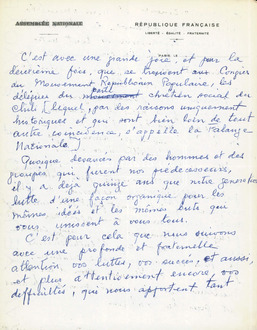 ASSEMBLÉE NATIONALE
RÉPUBLIQUE FRANÇAISE
LIBERTÉ - ÉGALITÉ - FRATERNITÉ
PARIS LE
C'est avec une grande joie, et par la
deuxième fois, que se trouvent au Congrès
du Mouvement Republicain Populaire, les
délégués du parti chrétien social du
Chili [lequel, par des raisons uniquement
historiques et qui sont bien loin de tout
autre coincidence, s'appelle la Falange
Nationale]
Quoique devancés par des hommes et des
groupes qui furent nos prédecesseurs,
il y a dejà quinze ans que notre generation
lutte d'une façon organique pour les
mêmes idées et les mêmes buts qui
nous unissent à vous tous.
C'est pour cela que nous suivons
avec une profonde et fraternelle
attention, vos luttes, vos succès, et aussi,
et plus attentivement encore, vos
difficultés, qui nous apportent tant